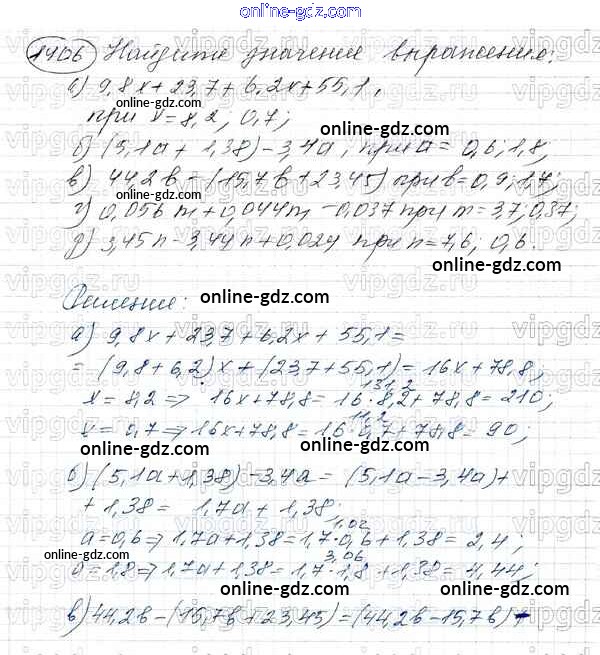 online-gdz.com
1406 Найдите значение выражения:
а) 9,8x + 23,7 + 6,2x + 55,1,
online-gdz.com
при x = 8,2; 0,7;
online-gdz.com
б) (5,1a + 1,38) - 3,4a, при a = 0,6; 1,8;
в) 44,2b - (15,7b + 23,45) при b = 0,9; 1,7;
online-gdz.com
г) 0,056m + 0,044m - 0,037 при m = 3,7; 0,37;
д) 3,45n - 3,44n + 0,024 при n = 7,6; 0,6.
online-gdz.com
Решение:
online-gdz.com
а) 9,8x + 23,7 + 6,2x + 55,1 =
online-gdz.com
= (9,8 + 6,2)x + (23,7 + 55,1) = 16x + 78,8;
131,2
x = 8,2 => 16x + 78,8 = 16·8,2 + 78,8 = 210;
online-gdz.com
11,2
x = 0,7 => 16x + 78,8 = 16·0,7 + 78,8 = 90;
online-gdz.com
online-gdz.com
б) (5,1a + 1,38) - 3,4a = (5,1a - 3,4a) +
+ 1,38 = 1,7a + 1,38;
online-gdz.com
1,02
a = 0,6 => 1,7a + 1,38 = 1,7·0,6 + 1,38 = 2,4;
online-gdz.com
3,06
a = 1,8 => 1,7a + 1,38 = 1,7·1,8 + 1,38 = 4,44;
online-gdz.com
online-gdz.com
в) 44,2b - (15,7b + 23,45) = (44,2b - 15,7b) -